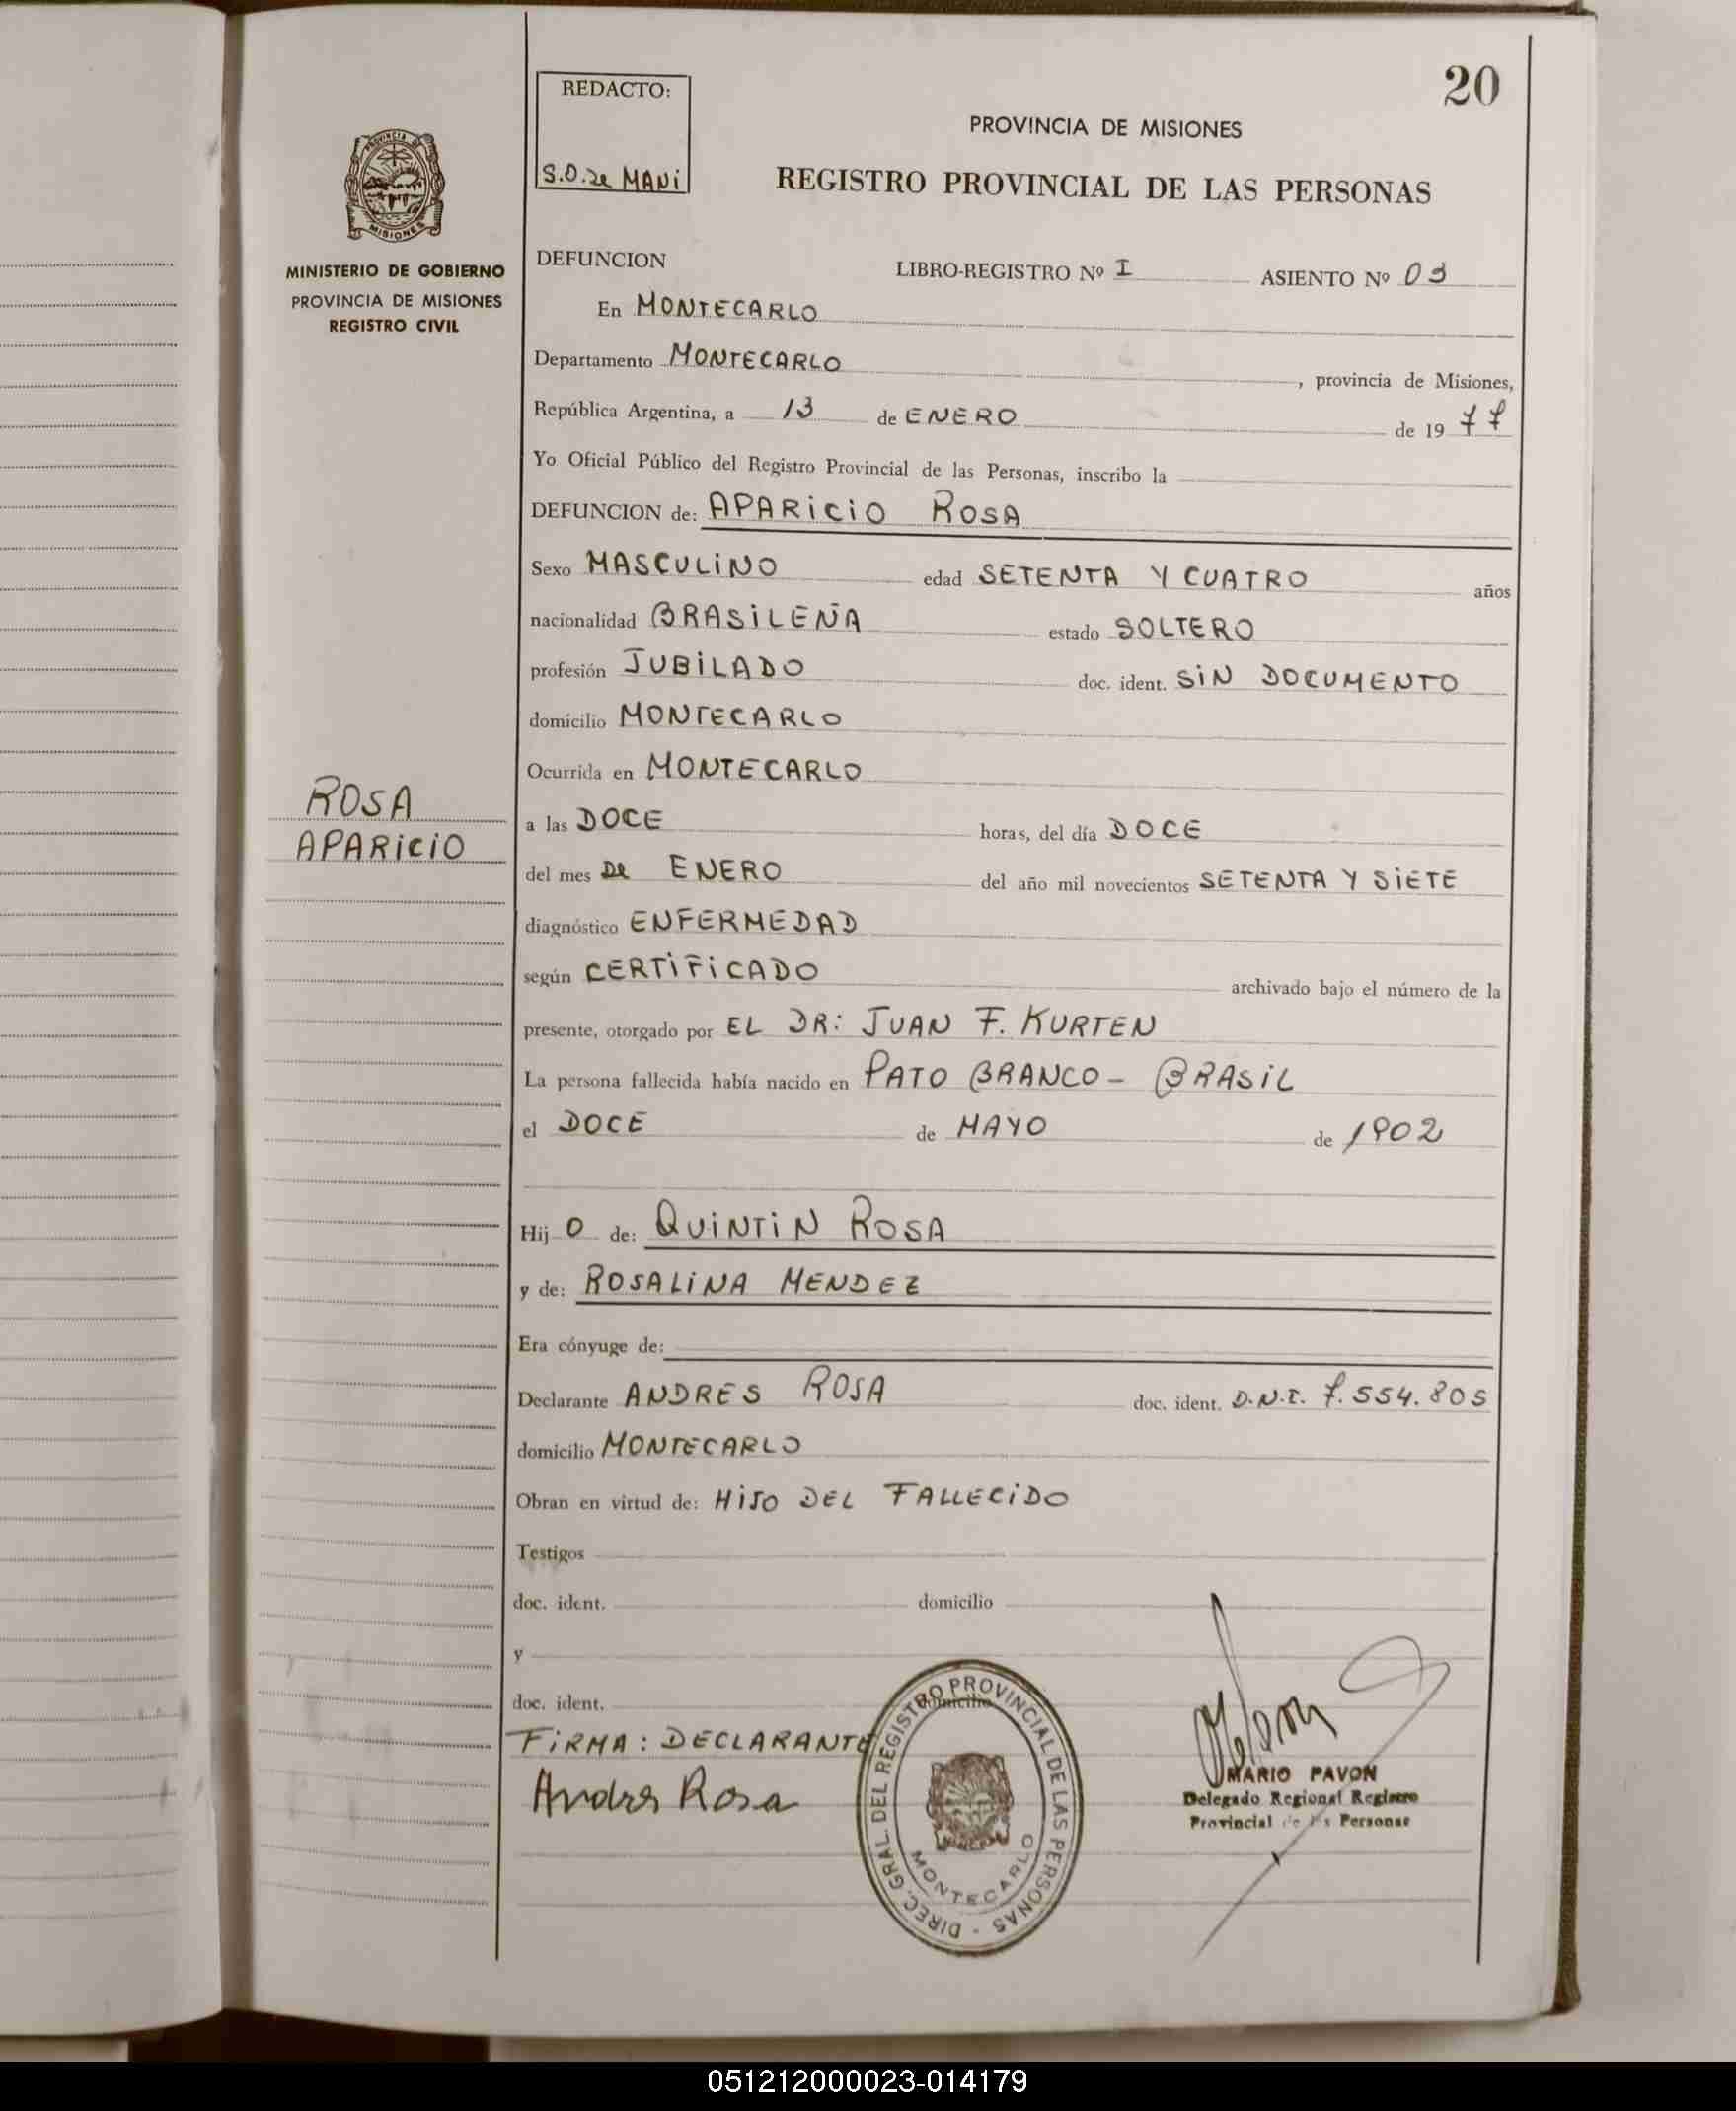 20
REDACTO:
S.D. de MANI
PROVINCIA DE MISIONES
REGISTRO PROVINCIAL DE LAS PERSONAS
PROVINCIA DE
MISIONES
MINISTERIO DE GOBIERNO
PROVINCIA DE MISIONES
REGISTRO CIVIL
DEFUNCION LIBRO-REGISTRO Nº I ASIENTO Nº 03
En MONTECARLO
Departamento MONTECARLO, provincia de Misiones,
República Argentina, a 13 de ENERO de 1977
Yo Oficial Público del Registro Provincial de las Personas, inscribo la
DEFUNCION de: APARICIO ROSA
Sexo MASCULINO edad SETENTA Y CUATRO años
nacionalidad BRASILEÑA estado SOLTERO
profesión JUBILADO doc. ident. SIN DOCUMENTO
domicilio MONTECARLO
Ocurrida en MONTECARLO
ROSA
APARICIO
a las DOCE horas, del día DOCE
del mes DE ENERO del año mil novecientos SETENTA Y SIETE
diagnóstico ENFERMEDAD
según CERTIFICADO archivado bajo el número de la
presente, otorgado por EL DR: JUAN F. KURTEN
La persona fallecida había nacido en PATO BRANCO - BRASIL
el DOCE de MAYO de 1902
Hijo de: QUINTIN ROSA
y de: ROSALINA MENDEZ
Era cónyuge de:
Declarante ANDRES ROSA doc. ident. D.N.I. 7.554.805
domicilio MONTECARLO
Obran en virtud de: HIJO DEL FALLECIDO
Testigos
doc. ident. domicilio
y
doc. ident. domicilio
FIRMA: DECLARANTE
Andres Rosa
DIREC. GRAL. DEL REGISTRO PROVINCIAL DE LAS PERSONAS -
MONTECARLO
MARIO PAVON
Delegado Regional Registro
Provincial de las Personas
051212000023-014179